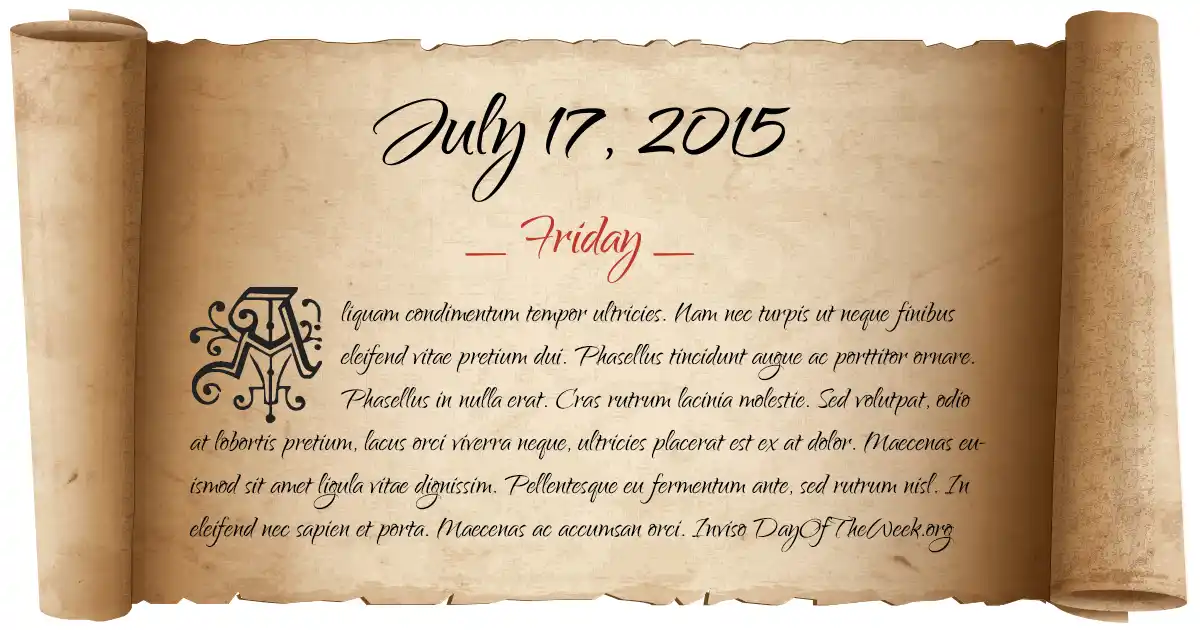 July 17, 2015
_ Friday _
Aliquam condimentum tempor ultricies. Nam nec turpis ut neque finibus
eleifend vitae pretium dui. Phasellus tincidunt augue ac porttitor ornare.
Phasellus in nulla erat. Cras rutrum lacinia molestie. Sed volutpat, odio
at lobortis pretium, lacus orci viverra neque, ultricies placerat est ex at dolor. Maecenas eu-
ismod sit amet ligula vitae dignissim. Pellentesque eu fermentum ante, sed rutrum nisl. In
eleifend nec sapien et porta. Maecenas ac accumsan orci. Inviso DayOfTheWeek.org